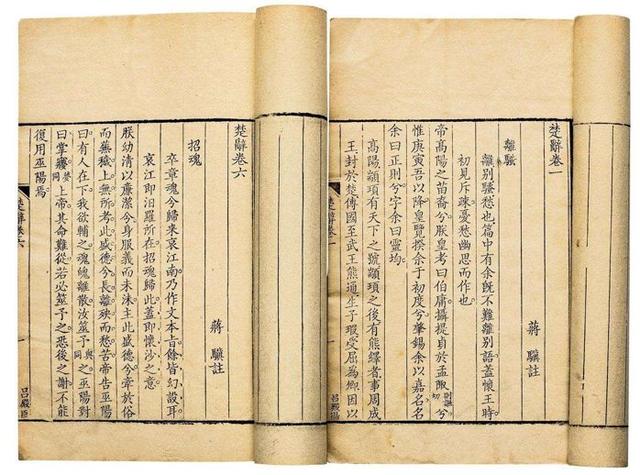 楚辭卷一
蔣驥註
離騷
離別騷愁也篇中有余既不難離別語蓋懷王時
初見斥疎憂愁幽思而作也
帝高陽之苗裔兮朕皇考曰伯庸攝提貞於孟陬兮
惟庚寅吾以降皇覽揆余于初度兮肇錫余以嘉名名
余曰正則兮字余曰靈均。
高陽顓頊有天下之號顓頊之後有熊繹者事周成
王封於楚傳國至武王熊通生子瑕受屈為卿因以
楚辭卷一
楚辭卷六
蔣驥註
招魂
卒章魂兮歸來哀江南乃作文本旨餘皆幻設耳
哀江即汨羅所在招魂歸此蓋即懷沙之意
朕幼清以廉潔兮身服義而未沬主此盛德兮牽於俗
而蕪穢上無所考此盛德兮長離殃而愁苦帝告巫陽
曰有人在下我欲輔之魂魄離散汝筮予與同之巫陽對
曰掌㝱夢同上帝其命難從若必筮予之恐後之謝不能
復用巫陽焉。
楚辭卷六